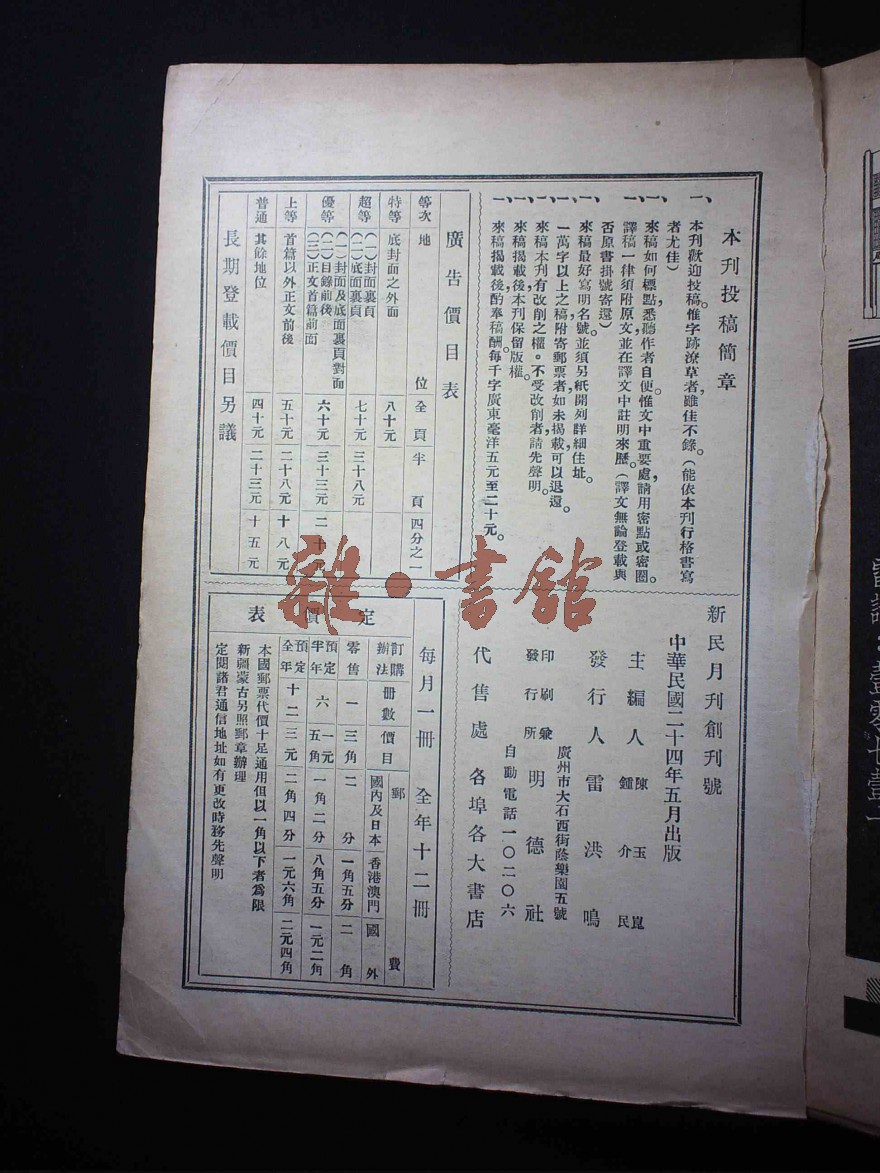 本刊投稿簡章
一、本刊歡迎投稿。惟字跡潦草者，雖佳不錄。（能依本刊行格書寫
者尤佳）
一、來稿如何標點悉聽作者自便，惟文中重要處，請用密點或密圈。
一、譯稿一律須附原文，並在譯文中註明來歷。（譯文無論登載與
否原書掛號寄還）
一、來稿最好寫明名號。並須另紙開列詳細住址。
一、一萬字以上之稿，附寄郵票者，如未揭載，可以退還。
一、來稿本刊有改削之權。不受改削者，請先聲明。
一、來稿揭載後，本刊保留版權。
一、來稿揭載後酌奉稿酬，每千字廣東毫洋五元至二十元。
廣告價目表
等次 地位 全頁 半頁 四分之一
特等 底封面之外面 八十元
超等 （一）封面裏頁 （二）底面裏頁 七十元 三十八元
優等 （一）封面及底面裏頁對面 （二）目錄前後 （三）正文首篇前面 六十元 三十三元 二十元
上等 首篇以外正文前後 五十元 二十八元 十八元
普通 其餘地位 四十元 二十三元 十五元
長期登載價目另議
新民月刊創刊號
中華民國二十四年五月出版
主編人 陳玉崑 鍾介民
發行人 雷洪鳴
廣州市大石西街蔭樂園五號
印刷兼發行所 明德社
自動電話一〇二〇六
代售處 各埠各大書店
每月一冊 全年十二冊
定價表
訂購辦法 冊數 價目 郵費 國內及日本 香港澳門 國外
零售 一 三角 二分 一角五分 二角
預定半年 六 一元五角 一角二分 八角五分 一元二角
預定全年 十二 三元 二角四分 一元六角 二元四角
本國郵票代價十足通用但以一角以下者為限
新疆蒙古另照郵章辦理
定閱諸君通信地址如有更改時務先聲明
雜·書館